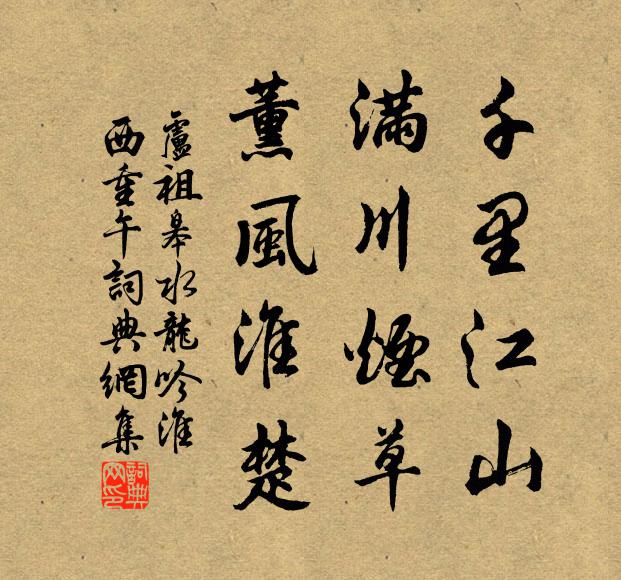 千里江山
滿川煙草
薰風淮楚
盧祖皋水龍吟淮
西重午詞典網集
詞典
网印